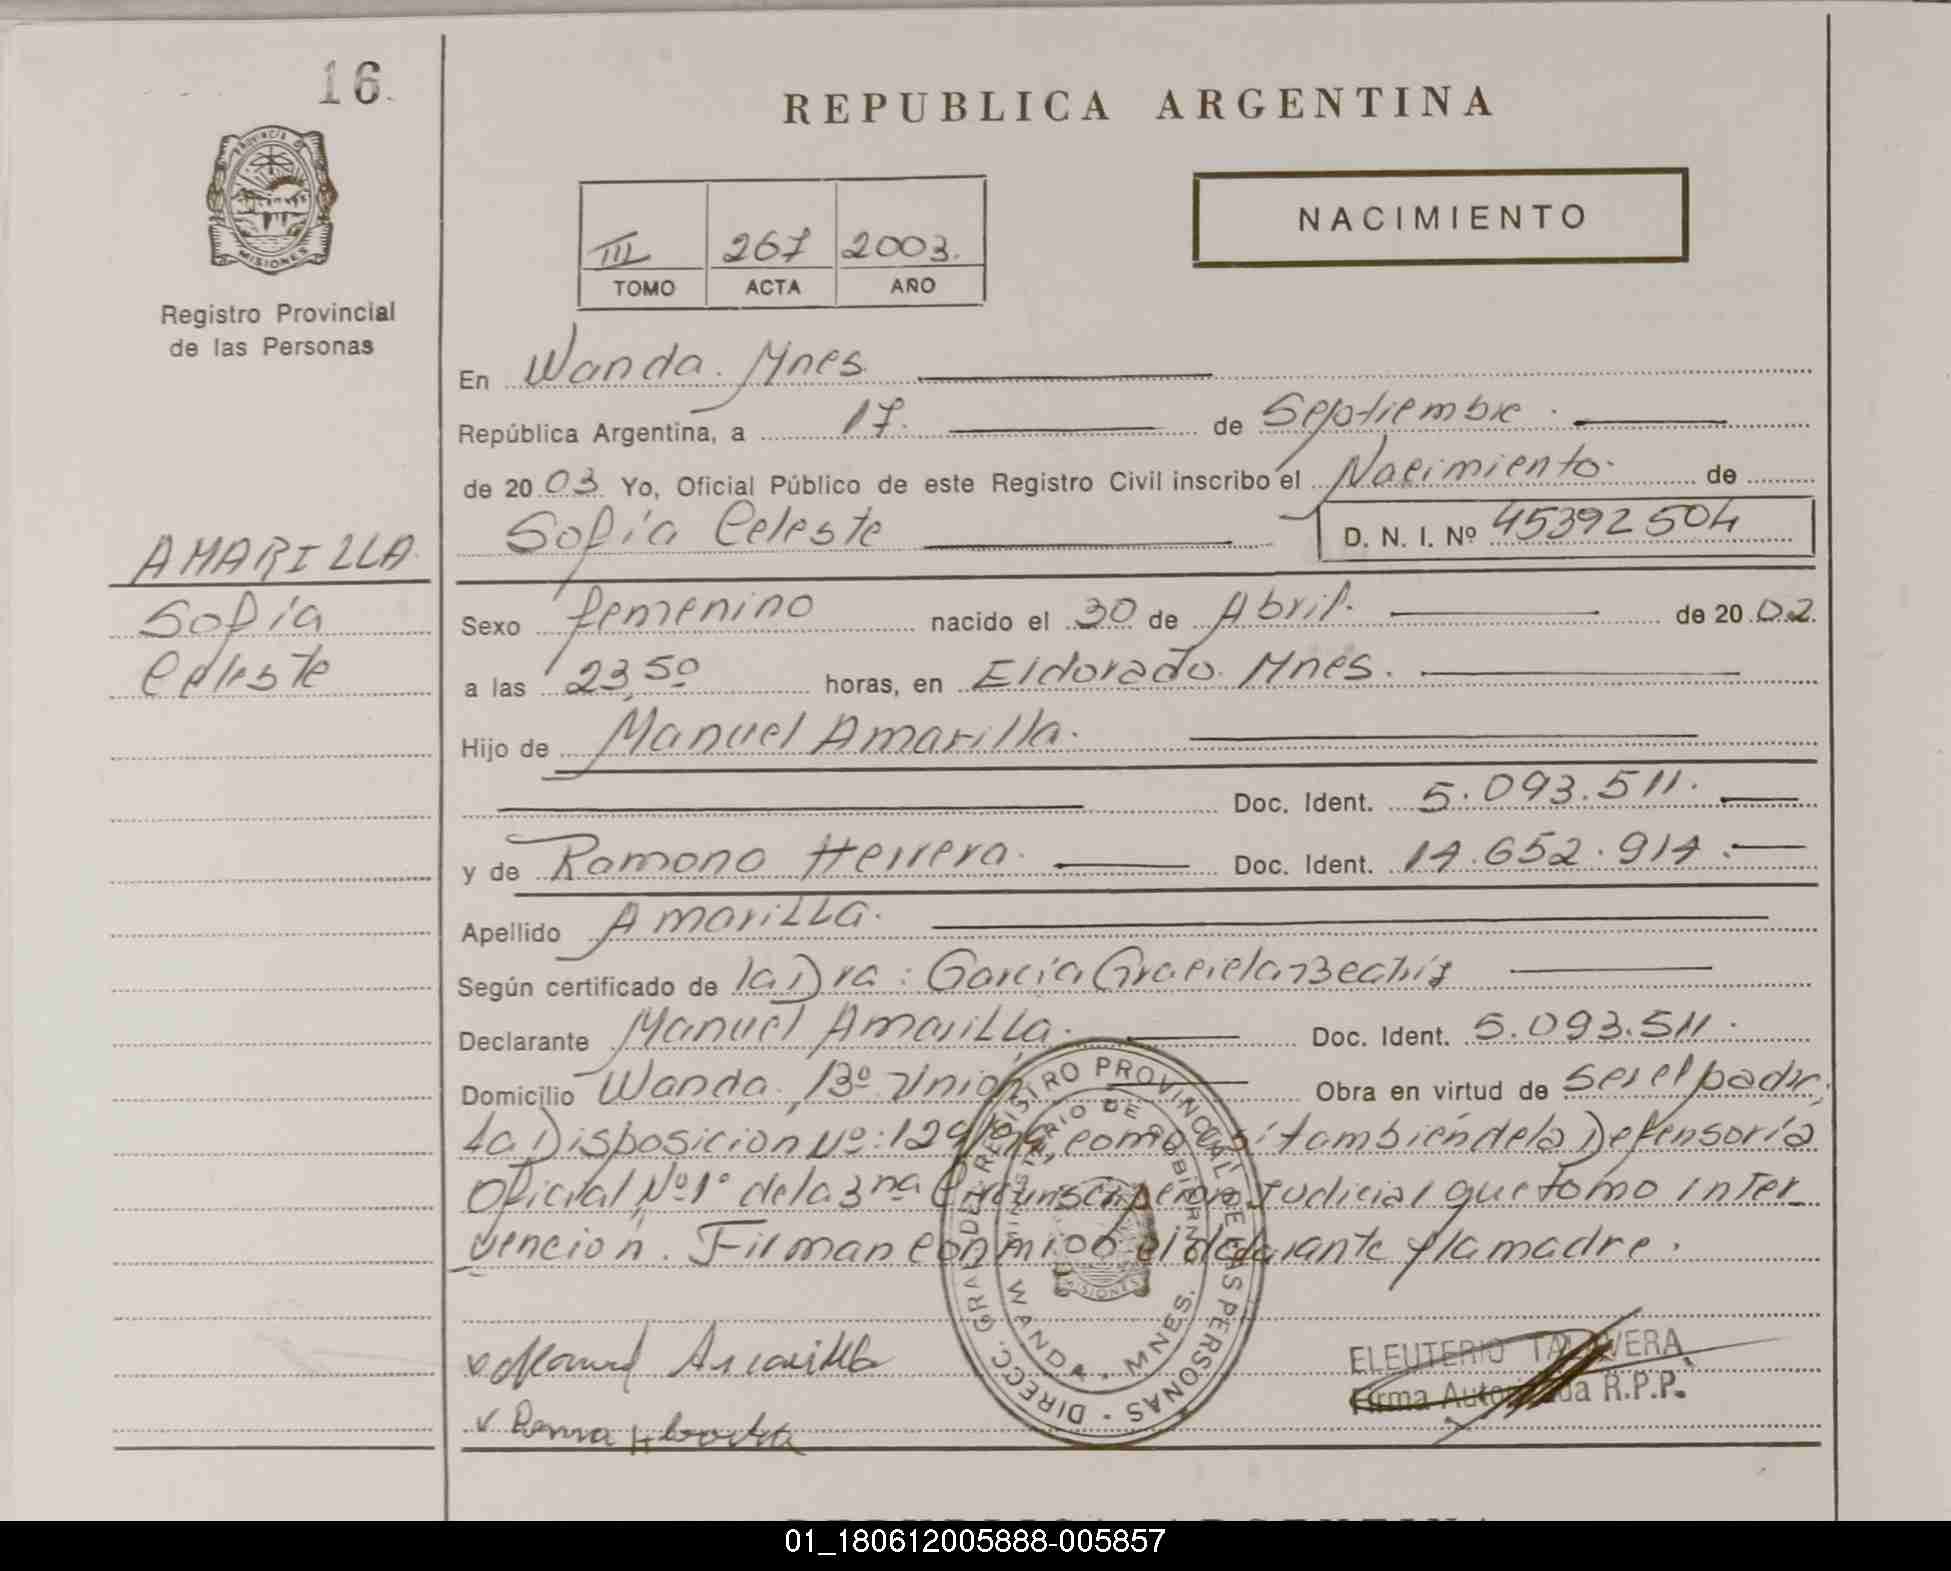 16
PROVINCIA DE
MISIONES
Registro Provincial
de las Personas
AMARILLA
Sofía
Celeste
REPUBLICA ARGENTINA
III 267 2003.
TOMO ACTA AÑO
NACIMIENTO
En Wanda. Mnes
República Argentina, a 17. de Septiembre.
de 20 03 Yo, Oficial Público de este Registro Civil inscribo el Nacimiento. de
Sofía Celeste D. N. I. Nº 45392504
Sexo femenino nacido el 30 de Abril. de 20 02.
a las 23,50 horas, en Eldorado. Mnes.
Hijo de Manuel Amarilla.
Doc. Ident. 5.093.511.
y de Ramona Herrera. Doc. Ident. 14.652.914.
Apellido Amarilla.
Según certificado de la Dra: García Graciela
Declarante Manuel Amarilla. Doc. Ident. 5.093.511.
Domicilio Wanda, Bº Unión Obra en virtud de ser el padre,
La Disposicion Nº: como así también de la Defensoría
Oficial, Nº1º de la 3ra Circunscripcion Judicial que tomo inter
vencion. Firman conmigo el declarante y la madre.
DIRECC. GRAL. DEL REGISTRO PROVINCIAL DE LAS PERSONAS
MINISTERIO DE GOBIERNO
MISIONES
WANDA - MNES.
Manuel Amarilla
ELEUTERIO TALAVERA
Firma Autorizada R.P.P.
01_180612005888-005857